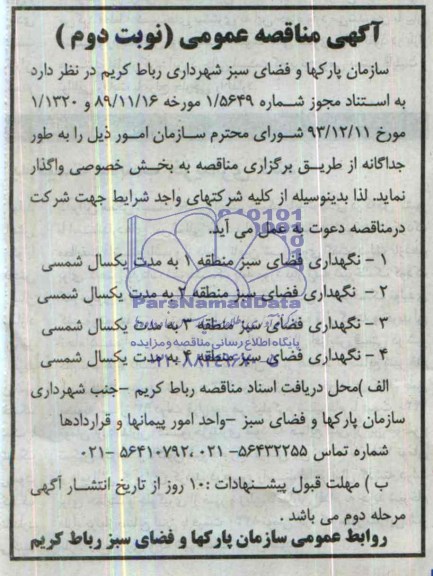 آگهی مناقصه عمومی (نوبت دوم)
سازمان پارکها و فضای سبز شهرداری رباط کریم در نظر دارد
به استناد مجوز شماره ۱/۵۶۴۹ مورخه ۸۹/۱۱/۱۶ و ۱/۱۳۲۰
مورخ ۹۳/۱۲/۱۱ شورای محترم سازمان امور ذیل را به طور
جداگانه از طریق برگزاری مناقصه به بخش خصوصی واگذار
نماید. لذا بدینوسیله از کلیه شرکتهای واجد شرایط جهت شرکت
درمناقصه دعوت به عمل می آید.
۱ - نگهداری فضای سبز منطقه ۱ به مدت یکسال شمسی
۲ - نگهداری فضای سبز منطقه ۲ به مدت یکسال شمسی
ParsNamadData
۳ - نگهداری فضای سبز منطقه ۳ به مدت یکسال شمسی
پایگاه اطلاع رسانی مناقصه و مزایده
۴ - نگهداری فضای سبز منطقه ۴ به مدت یکسال شمسی
الف )محل دریافت اسناد مناقصه رباط کریم -جنب شهرداری
سازمان پارکها و فضای سبز -واحد امور پیمانها و قراردادها
شماره تماس ۵۶۴۳۲۲۵۵- ۰۲۱ ،۵۶۴۱۰۷۹۲- ۰۲۱
ب ) مهلت قبول پیشنهادات :۱۰ روز از تاریخ انتشار آگهی
مرحله دوم می باشد .
روابط عمومی سازمان پارکها و فضای سبز رباط کریم